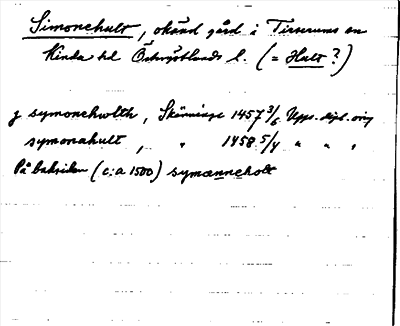 Simonehult, okänd gård i Tirserums sn
Kinda hd Östergötlands l. (= Hult ?)
J symonehwlth, Skänninge 1457 3/6 Upps. dipl. orig
symonahult, " 1458 5/4 " " "
På baksidan (c:a 1500) symænneholt